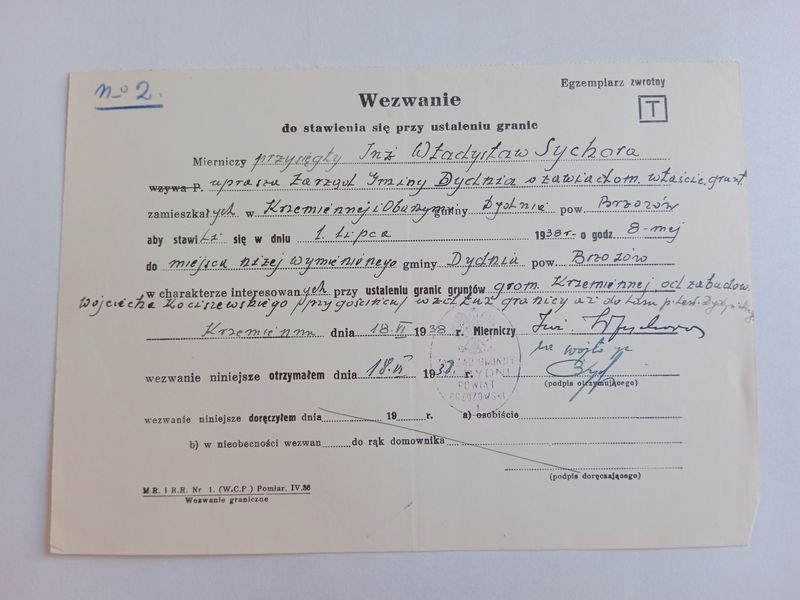 no 2.
Egzemplarz zwrotny
T
Wezwanie
do stawienia się przy ustaleniu granic
Mierniczy przysięgły Inż Władysław Sychora
wzywa P. uprasza Zarząd Gminy Dydnia o zawiadom. właścic. grunt.
zamieszkałych w Krzemiennej i Obarzym gminy Dydnia pow. Brzozów
aby stawili się w dniu 1. Lipca 1938 r. o godz. 8-mej
do miejsca niżej wymienionego gminy Dydnia pow. Brzozów
w charakterze interesowanych przy ustaleniu granic gruntów grom. Krzemiennej od zabudow.
Wojciecha Kociszewskiego /przy gościńcu/ wzdłuż granicy aż do
Krzemienna dnia 18.VI 1938 r. Mierniczy Inż. WSychora
za wójta
wezwanie niniejsze otrzymałem dnia 18.VI 1938. r.
(podpis otrzymującego)
ZARZĄD GMINY
POWIAT
BRZOZOWSKI
wezwanie niniejsze doręczyłem dnia 19 r. a) osobiście
b) w nieobecności wezwan do rąk domownika
(podpis doręczającego)
M.R. i R.R. Nr 1. (W.C.P.) Pomiar. IV.36
Wezwanie graniczne